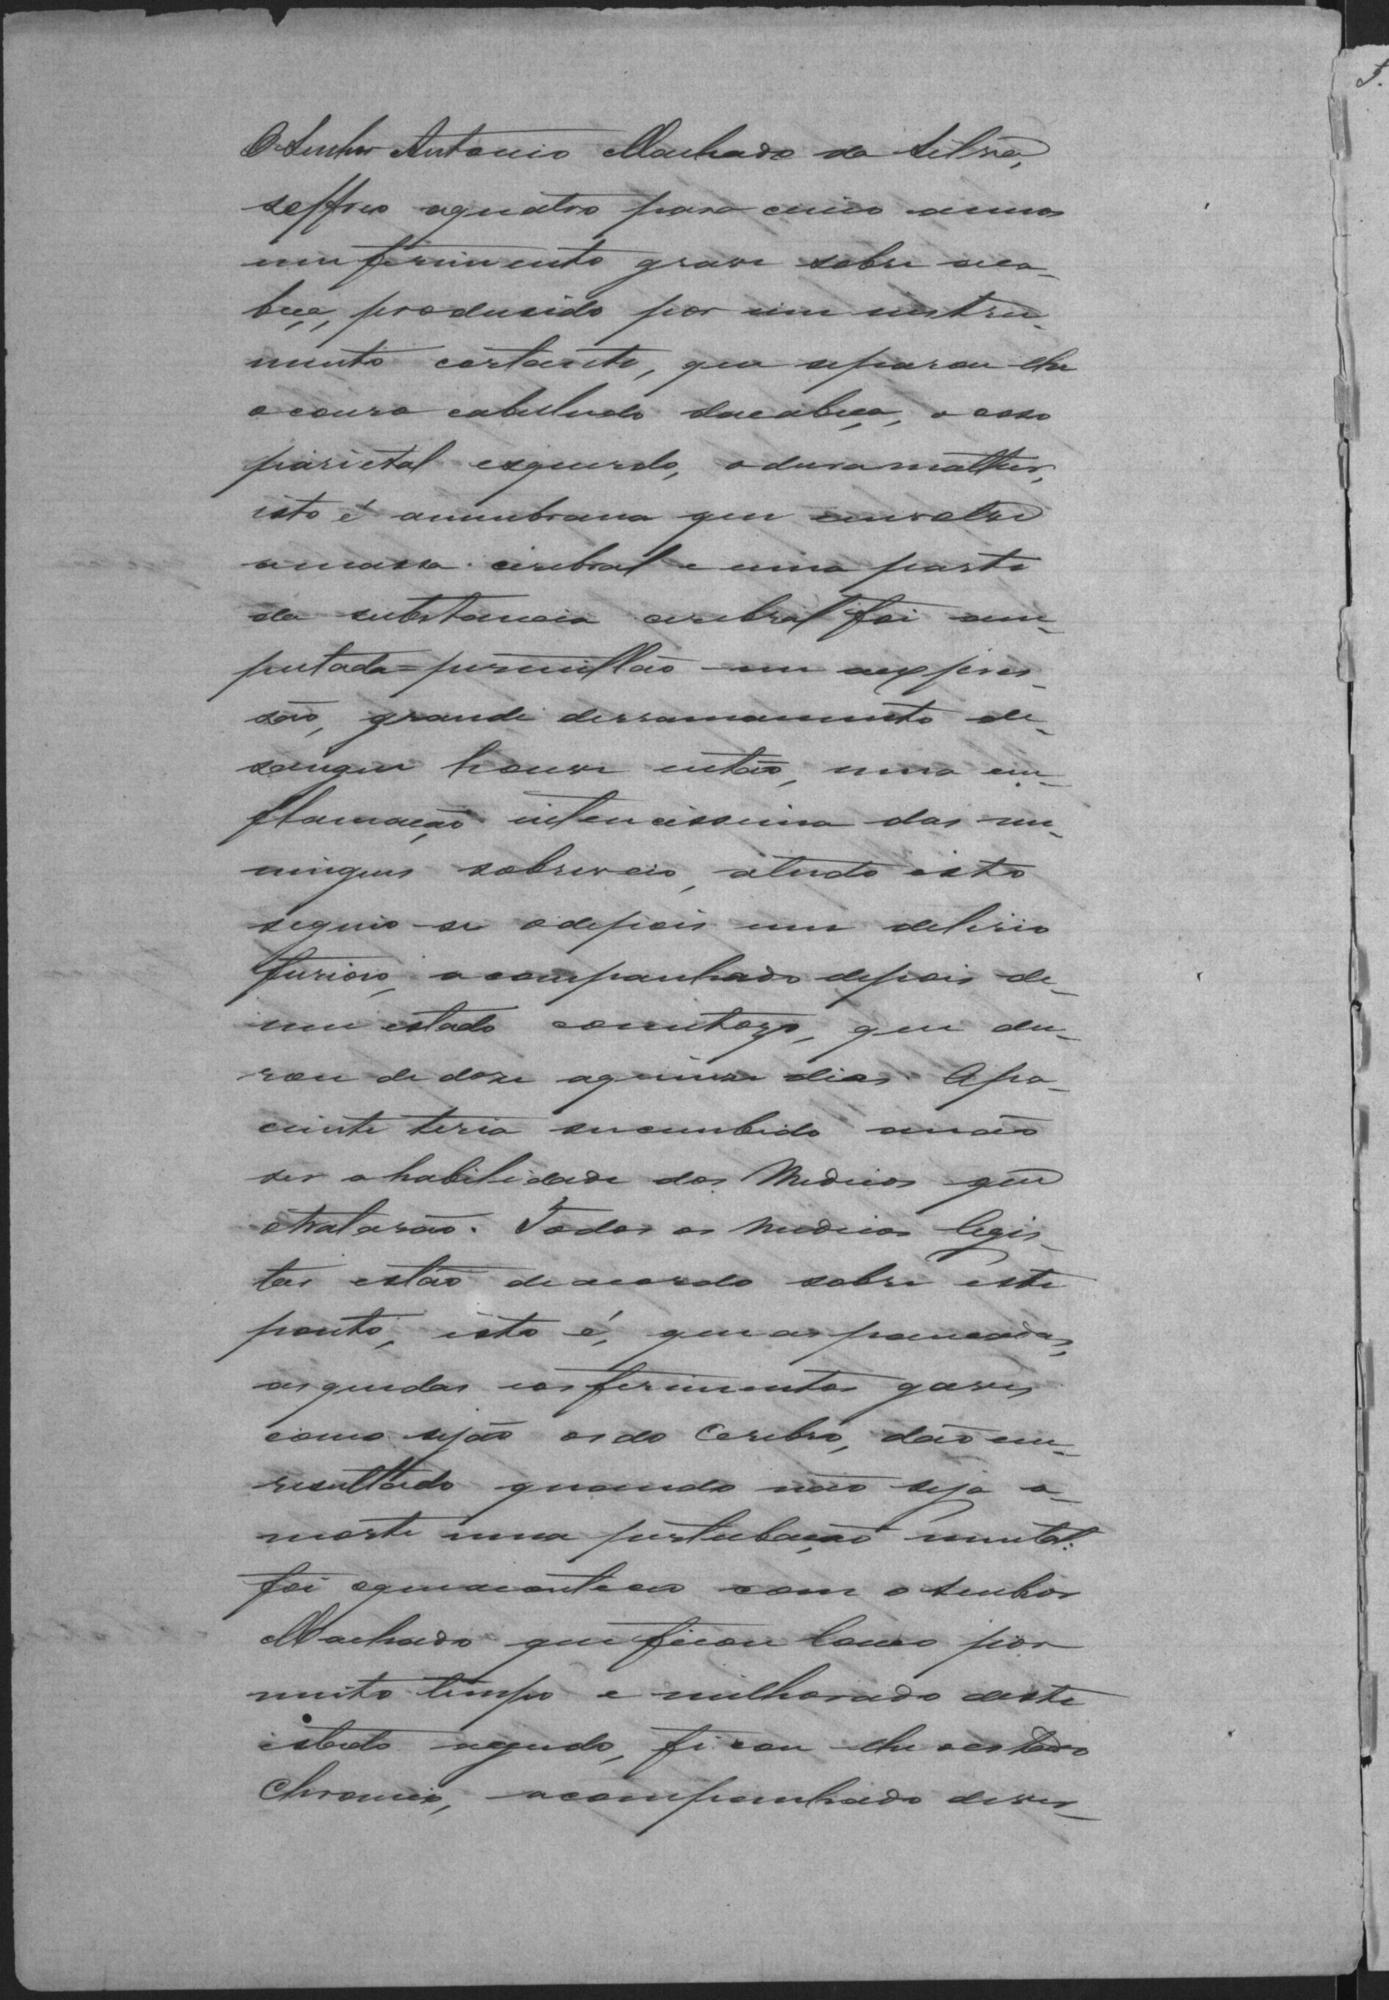 O Senhor Antonio Machado da Silva,
soffreo aquatro para cinco annos
um ferimento grave sobre aca-
beça, produsido por um instru-
mento cortante, que separou lhe
o couro cabeludo dacabeça, o osso
parietal esquerdo, aduramatter,
isto é amembrana que envolve
amassa cerebral e uma parte
da substancia cerebral foi am-
putada = permittão-me aexpres-
são, grande derramamento de-
sangue houve então, uma in-
flamação intencissima das me-
ninges sobreveio, atudo isto
seguio-se odepois um delirio
furioso, acompanhado depois de-
um estado comatozo, que du-
rou de doze aquinze dias. Opa-
ciente teria sucumbido anão
ser ahabilidade dos Medicos que
otratarão. Todos os Medicos legis-
tas estão deacordo sobre este
ponto, isto é, que as pancadas,
asquedas eosferimentos graves
como sejão osdo Cerebro, dão em-
resultado quando não seja a-
morte uma pertubação mental:
foi oqueaconteceu com o Senhor
Machado que ficou louco por
muito tempo e milhorado deste
estado agudo, ficou lhe oestado
Chronico, acompanhado